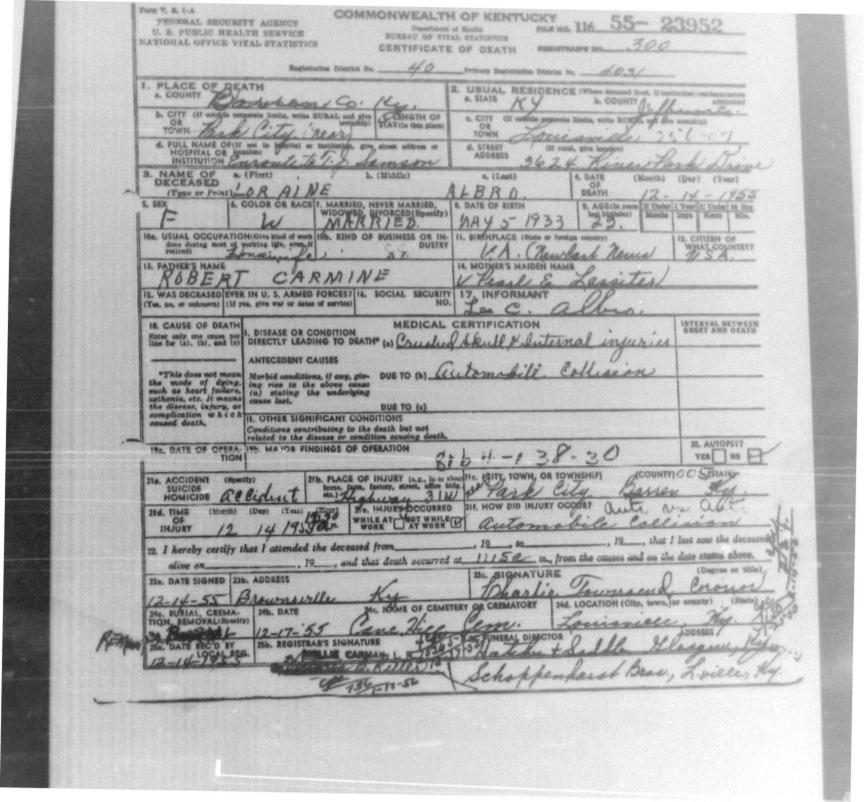 Form V. S. 1-A
FEDERAL SECURITY AGENCY
U. S. PUBLIC HEALTH SERVICE
NATIONAL OFFICE VITAL STATISTICS
COMMONWEALTH OF KENTUCKY
Department of Health
BUREAU OF VITAL STATISTICS
CERTIFICATE OF DEATH
FILE NO. 116 55- 23952
REGISTRAR'S NO. 300
Registration District No. 40 Primary Registration District No. 4031
1. PLACE OF DEATH
a. COUNTY Barren Co. Ky.
b. CITY (If outside corporate limits, write RURAL and give township) OR TOWN Park City (near)
c. LENGTH OF STAY (in this place)
d. FULL NAME OF (If not in hospital or institution, give street address or location) HOSPITAL OR INSTITUTION Enroute to T.J. Samson
2. USUAL RESIDENCE (Where deceased lived. If institution: residence before admission)
a. STATE KY b. COUNTY
c. CITY (If outside corporate limits, write RURAL and give township) OR TOWN Louisville
d. STREET ADDRESS (If rural, give location) 3624 River Park Drive
3. NAME OF DECEASED (Type or Print) a. (First) LORAINE b. (Middle) c. (Last) ALBRO
4. DATE OF DEATH (Month) (Day) (Year) 12-14-1955
5. SEX F
6. COLOR OR RACE W
7. MARRIED, NEVER MARRIED, WIDOWED, DIVORCED (Specify) MARRIED.
8. DATE OF BIRTH MAY 5 1933
9. AGE (In years last birthday) If Under 1 Year Months Days If Under 24 Hrs Hours Min.
10a. USUAL OCCUPATION (Give kind of work done during most of working life, even if retired) Housewife
10b. KIND OF BUSINESS OR INDUSTRY
11. BIRTHPLACE (State or foreign country) VA. (Newport News
12. CITIZEN OF WHAT COUNTRY? USA
13. FATHER'S NAME ROBERT CARMINE
14. MOTHER'S MAIDEN NAME Pearl E Lassiter
15. WAS DECEASED EVER IN U. S. ARMED FORCES? (Yes, no, or unknown) (If yes, give war or dates of service)
16. SOCIAL SECURITY NO.
17. INFORMANT Lee C. Albro.
18. CAUSE OF DEATH
Enter only one cause per line for (a), (b), and (c)
*This does not mean the mode of dying, such as heart failure, asthenia, etc. It means the disease, injury, or complication which caused death.
MEDICAL CERTIFICATION
INTERVAL BETWEEN ONSET AND DEATH
I. DISEASE OR CONDITION DIRECTLY LEADING TO DEATH* (a) Crushed skull & Internal injuries
ANTECEDENT CAUSES
Morbid conditions, if any, giving rise to the above cause (a) stating the underlying cause last.
DUE TO (b) Automobile Collision
DUE TO (c)
II. OTHER SIGNIFICANT CONDITIONS
Conditions contributing to the death but not related to the disease or condition causing death.
19a. DATE OF OPERATION
19b. MAJOR FINDINGS OF OPERATION
20. AUTOPSY? YES NO
21a. ACCIDENT SUICIDE HOMICIDE (Specify) Accident
21b. PLACE OF INJURY (e.g., in or about home, farm, factory, street, office bldg., etc.) Highway 31W
21c. (CITY, TOWN, OR TOWNSHIP) (COUNTY) (STATE) near Park City Barren Ky.
21d. TIME OF INJURY (Month) (Day) (Year) (Hour) 12 14 1955
21e. INJURY OCCURRED WHILE AT WORK NOT WHILE AT WORK
21f. HOW DID INJURY OCCUR? Auto vs Auto
Automobile Collision
22. I hereby certify that I attended the deceased from , 19 to , 19 , that I last saw the deceased
alive on , 19 , and that death occurred at 1:15a m., from the causes and on the date stated above.
23a. DATE SIGNED 12-14-55
23b. ADDRESS Brownsville Ky
23c. SIGNATURE (Degree or title) Charlie Townsend Coronor
24a. BURIAL, CREMATION, REMOVAL (Specify)
24b. DATE 12-17-55
24c. NAME OF CEMETERY OR CREMATORY Cave Hill Cem.
24d. LOCATION (City, town, or county) (State) Louisville, Ky.
25a. DATE REC'D BY LOCAL REG. 12-14-1955
25b. REGISTRAR'S SIGNATURE
FUNERAL DIRECTOR ADDRESS Hatcher & Saddler Glasgow, Ky.
Schoppenhorst Bros, L.ville, Ky.